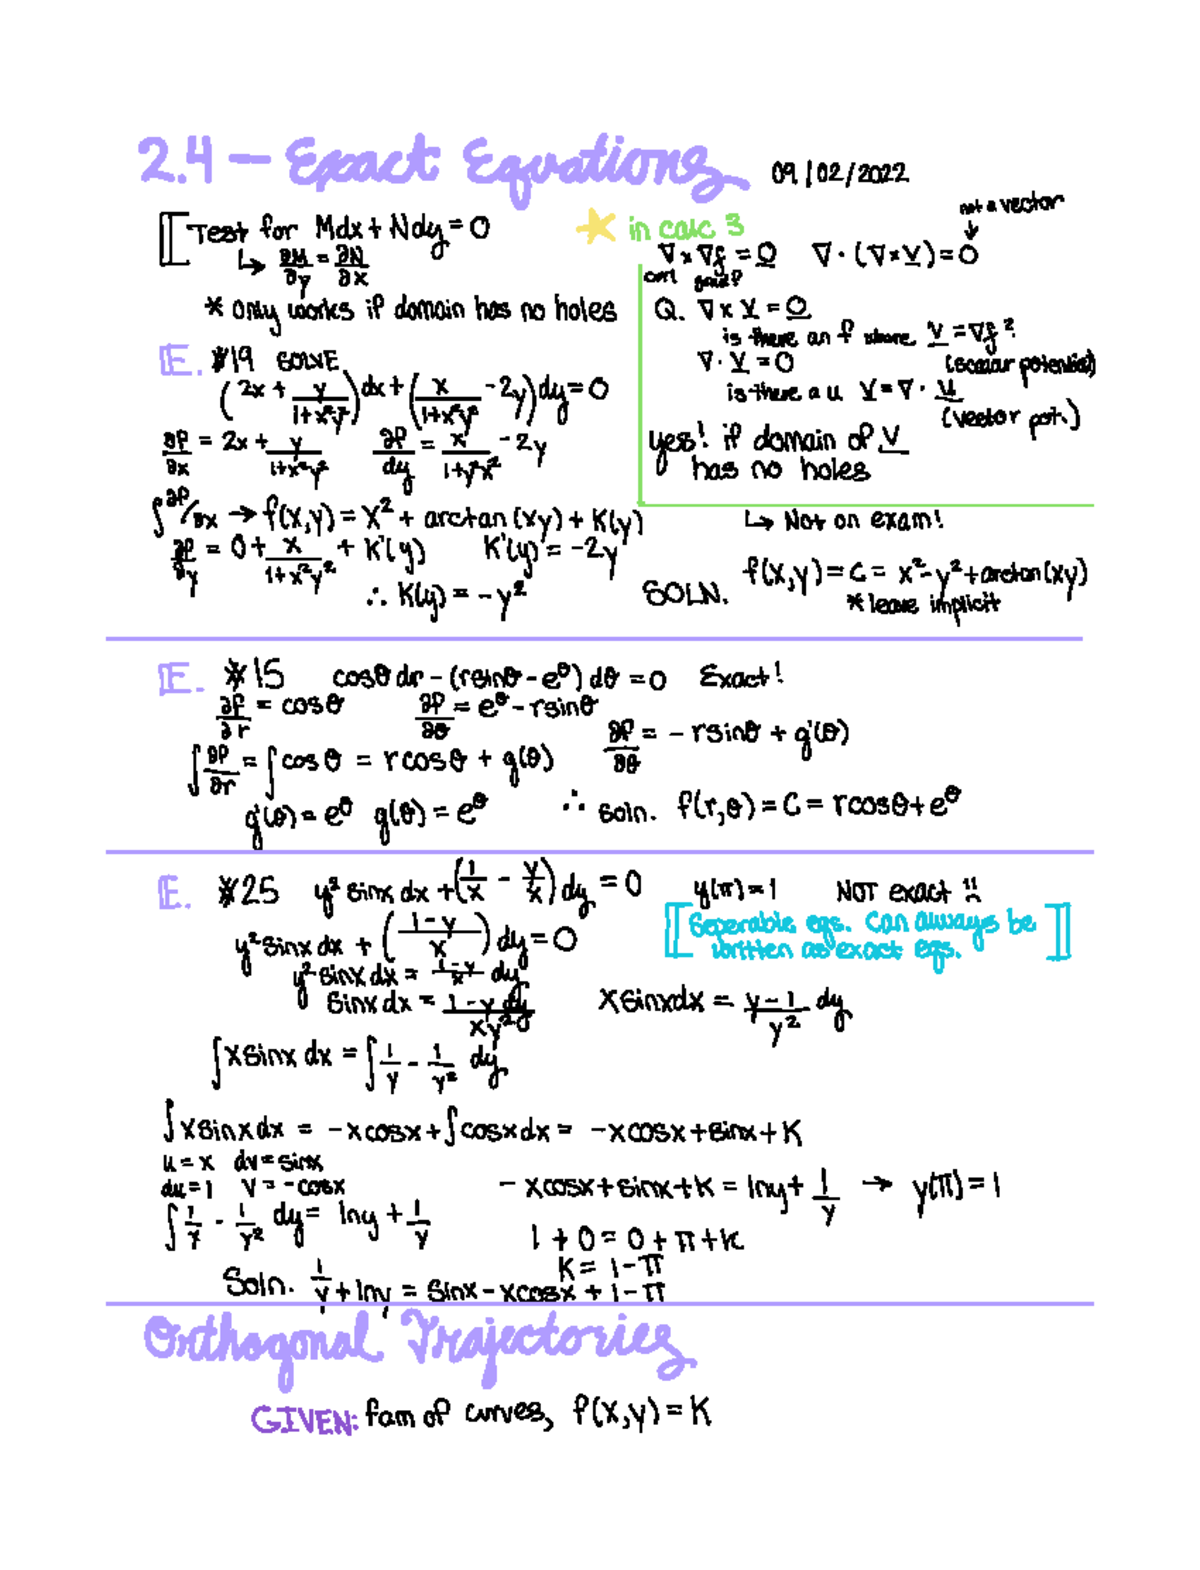 2.4 — Exact Equations 09/02/2022
Test for Mdx + Ndy = 0
↳ ∂M/∂y = ∂N/∂x
* only works if domain has no holes
★ in calc 3
not a vector
∇ × ∇f = 0 ∇ · (∇×V) = 0
curl
Q. ∇ × V = 0
is there an f where V = ∇f?
(scalar potential)
∇ · V = 0
is there a u V = ∇ · u
(vector pot.)
yes! if domain of V
has no holes
↳ Not on exam!
E. #19 SOLVE
(2x + y/(1+x²y²))dx + (x/(1+x²y²) - 2y)dy = 0
∂f/∂x = 2x + y/(1+x²y²) ∂f/dy = x/(1+y²x²) - 2y
∫∂f/∂x → f(x,y) = x² + arctan(xy) + K(y)
∂f/∂y = 0 + x/(1+x²y²) + K'(y) K'(y) = -2y
∴ K(y) = -y²
SOLN. f(x,y) = C = x² - y² + arctan(xy)
* leave implicit
E. #15 cosθ dr - (rsinθ - e^θ) dθ = 0 Exact!
∂f/∂r = cosθ ∂f/∂θ = e^θ - rsinθ
∫∂f/∂r = ∫cosθ = rcosθ + g(θ) ∂f/∂θ = -rsinθ + g'(θ)
g'(θ) = e^θ g(θ) = e^θ ∴ Soln. f(r,θ) = C = rcosθ + e^θ
E. #25 y² sinx dx + (1/x - y/x) dy = 0 y(π) = 1 NOT exact !!
[Seperable eqs. can always be
written as exact eqs.]
y² sinx dx + ((1-y)/x) dy = 0
y² sinx dx = (1-y)/x dy
sinx dx = (1-y dy)/(xy²) xsinxdx = (y-1)/y² dy
∫xsinx dx = ∫1/y - 1/y² dy
∫xsinxdx = -xcosx + ∫cosxdx = -xcosx + sinx + K
u = x dv = sinx
du = 1 v = -cosx
∫1/y - 1/y² dy = lny + 1/y
-xcosx + sinx + K = lny + 1/y → y(π) = 1
1 + 0 = 0 + π + K
K = 1 - π
Soln. 1/y + lny = sinx - xcosx + 1 - π
Orthogonal Trajectories
GIVEN: fam of curves, f(x,y) = K